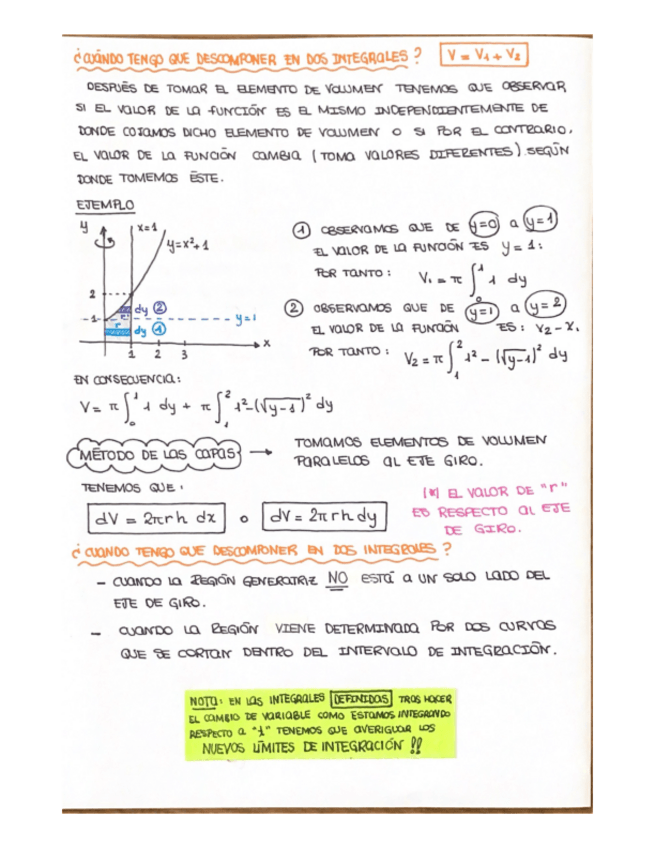 ¿CUÁNDO TENGO QUE DESCOMPONER EN DOS INTEGRALES? V = V₁ + V₂
DESPUÉS DE TOMAR EL ELEMENTO DE VOLUMEN TENEMOS QUE OBSERVAR
SI EL VALOR DE LA FUNCIÓN ES EL MISMO INDEPENDIENTEMENTE DE
DONDE COJAMOS DICHO ELEMENTO DE VOLUMEN O SI POR EL CONTRARIO,
EL VALOR DE LA FUNCIÓN CAMBIA (TOMA VALORES DIFERENTES) SEGÚN
DONDE TOMEMOS ÉSTE.
EJEMPLO
y x=1 y=x²+1
2 1 dy ② r dy ① y=1
1 2 3 x
① OBSERVAMOS QUE DE y=0 A y=1
EL VALOR DE LA FUNCIÓN ES y = 1:
POR TANTO: V₁ = π ∫₀¹ 1 dy
② OBSERVAMOS QUE DE y=1 A y=2
EL VALOR DE LA FUNCIÓN ES:
POR TANTO: V₂ = π ∫₁² 1² - (√y-1)² dy
EN CONSECUENCIA:
V = π ∫₀¹ 1 dy + π ∫₁² 1² - (√y-1)² dy
MÉTODO DE LAS CAPAS → TOMAMOS ELEMENTOS DE VOLUMEN
PARALELOS AL EJE GIRO.
TENEMOS QUE:
dV = 2πrh dx o dV = 2πrh dy
(*) EL VALOR DE "r"
ES RESPECTO AL EJE
DE GIRO.
¿CUANDO TENGO QUE DESCOMPONER EN DOS INTEGRALES?
- CUANDO LA REGIÓN GENERATRIZ NO ESTÁ A UN SOLO LADO DEL
EJE DE GIRO.
- CUANDO LA REGIÓN VIENE DETERMINADA POR DOS CURVAS
QUE SE CORTAN DENTRO DEL INTERVALO DE INTEGRACIÓN.
NOTA: EN LAS INTEGRALES DEFINIDAS TRAS HACER
EL CAMBIO DE VARIABLE COMO ESTAMOS INTEGRANDO
RESPECTO A "t" TENEMOS QUE AVERIGUAR LOS
NUEVOS LÍMITES DE INTEGRACIÓN !!